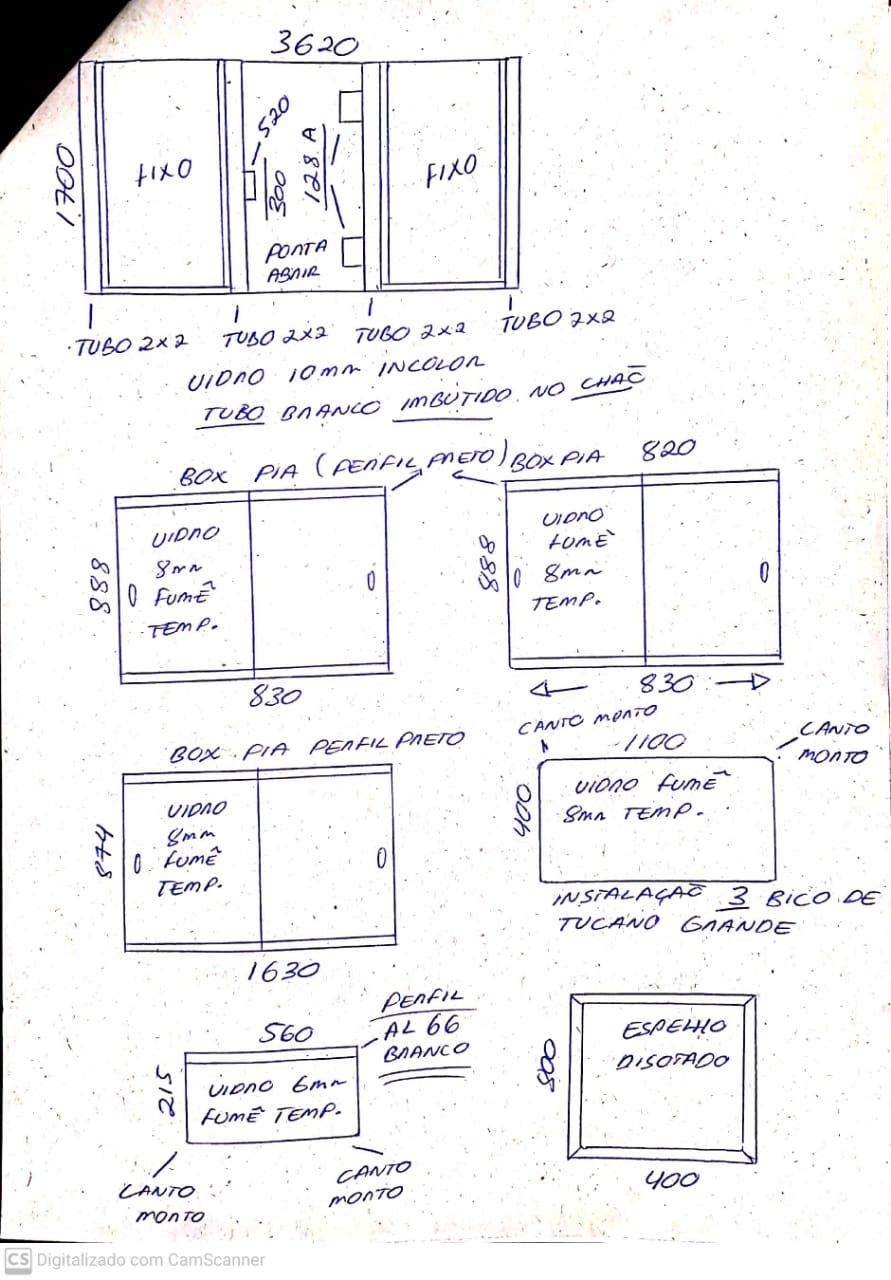 3620
1700
FIXO
520
300
128 A
PORTA
ABRIR
FIXO
TUBO 2x2
TUBO 2x2
TUBO 2x2
TUBO 2x2
VIDRO 10mm INCOLOR
TUBO BRANCO IMBUTIDO NO CHAÕ
BOX PIA (PERFIL PRETO)
888
VIDRO
8mm
FUMÊ
TEMP.
830
BOX PIA 820
888
VIDRO
FUMÊ
8mm
TEMP.
830
BOX PIA PERFIL PRETO
874
VIDRO
8mm
FUMÊ
TEMP.
1630
CANTO MORTO
1100
CANTO
MORTO
400
VIDRO FUMÊ
8mm TEMP.
INSTALAÇAÕ 3 BICO DE
TUCANO GRANDE
560
PERFIL
AL 66
BRANCO
215
VIDRO 6mm
FUMÊ TEMP.
CANTO
MORTO
CANTO
MORTO
ESPELHO
BISOTADO
400
CS Digitalizado com CamScanner